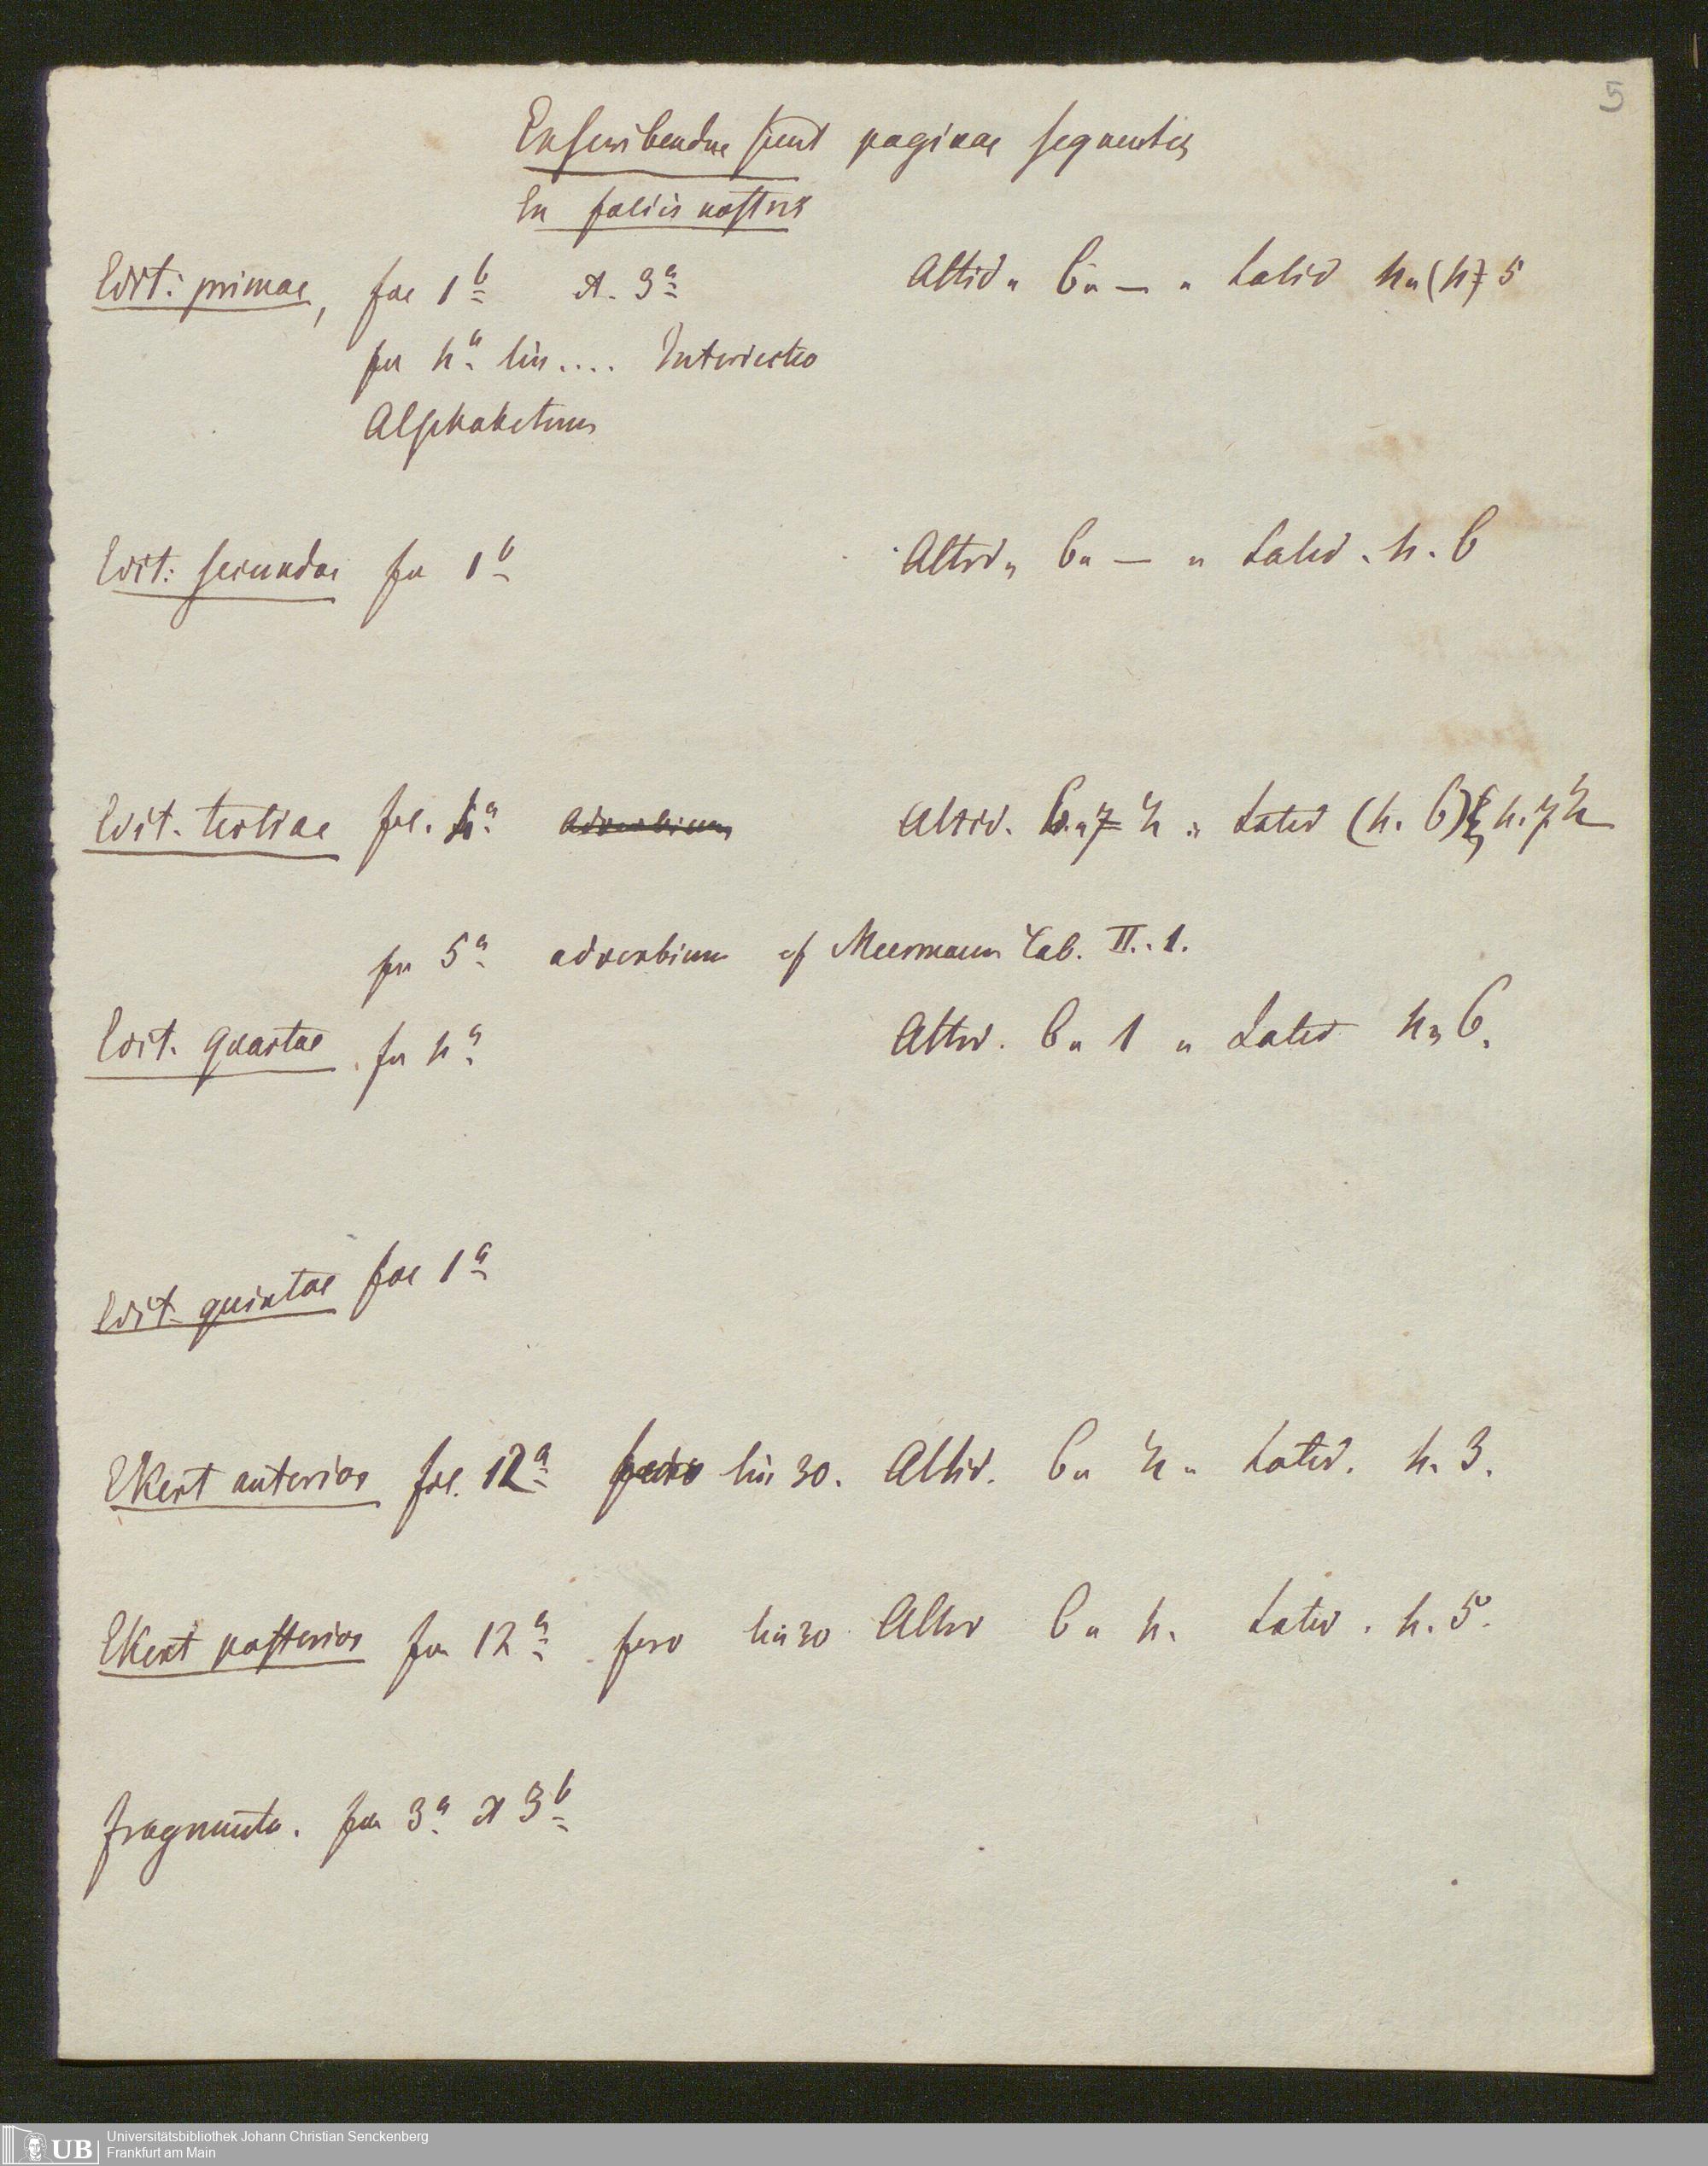 5
Exscribendae sunt paginae sequentes
In foliis nostris
Edit: primae, fae 1b et. 3a Altid " 6" — " Latid 4" (4) 5
fae 4a lin .... Interiectio
Alphabetum
Edit: secundae fae 1b Altid " 6" — " Latid. 4. 6
Edit. tertiae fae. 4a adverbium Altid. 6. 4 " Latid (4. 6) 4.
fae 5a adverbium cf Meermann Tab. II. 1.
Edit. quartae fae 4a Altid. 6 " 1 " Latid 4 " 6.
Edit. quintae fae 1a
Ekert anterior fae. 12a fero lin 30. Altid. 6 " 4 " Latid. 4. 3.
Ekert posterior fae 12a fero lin 30 Altid 6 " 4. Latid. 4. 5.
fragmenta. fae 3a et 3b
UB
Universitätsbibliothek Johann Christian Senckenberg
Frankfurt am Main